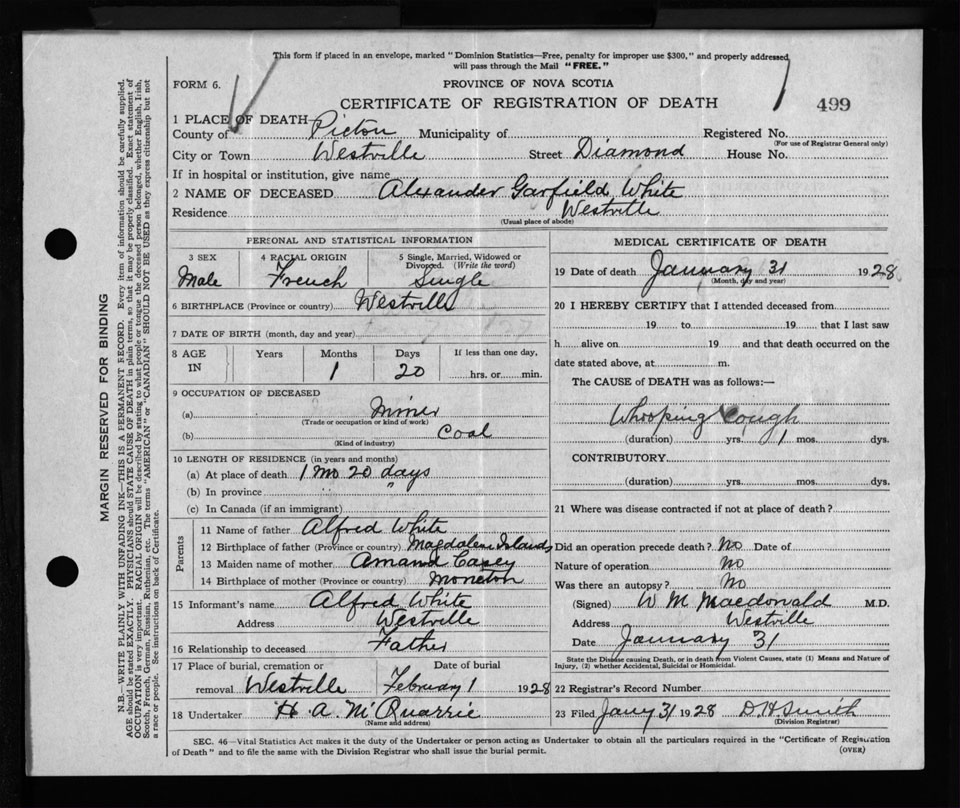 This form if placed in an envelope, marked "Dominion Statistics—Free, penalty for improper use $300," and properly addressed,
will pass through the Mail "FREE."
FORM 6.
PROVINCE OF NOVA SCOTIA
CERTIFICATE OF REGISTRATION OF DEATH
499
1 PLACE OF DEATH—
County of Pictou Municipality of Registered No.
(For use of Registrar General only)
City or Town Westville Street Diamond House No.
If in hospital or institution, give name
2 NAME OF DECEASED Alexander Garfield White
Residence Westville
(Usual place of abode)
PERSONAL AND STATISTICAL INFORMATION
3 SEX 4 RACIAL ORIGIN 5 Single, Married, Widowed or
Divorced. (Write the word)
Male French Single
6 BIRTHPLACE (Province or country) Westville
7 DATE OF BIRTH (month, day and year)
8 AGE IN Years Months Days If less than one day,
1 20 hrs. or min.
9 OCCUPATION OF DECEASED
(a) Miner
(Trade or occupation or kind of work)
(b) Coal
(Kind of industry)
10 LENGTH OF RESIDENCE (in years and months)
(a) At place of death 1 mo 20 days
(b) In province "
(c) In Canada (if an immigrant)
Parents
11 Name of father Alfred White
12 Birthplace of father (Province or country) Magdalene Islands
13 Maiden name of mother Amand Casey
14 Birthplace of mother (Province or country) Moncton
15 Informant's name Alfred White
Address Westville
16 Relationship to deceased Father
17 Place of burial, cremation or Date of burial
removal Westville February 1 1928
18 Undertaker H A McQuarrie
(Name and address)
MEDICAL CERTIFICATE OF DEATH
19 Date of death January 31 1928
(Month, day and year)
20 I HEREBY CERTIFY that I attended deceased from
19 to 19 that I last saw
h alive on 19 and that death occurred on the
date stated above, at m.
The CAUSE of DEATH was as follows:—
Whooping Cough
(duration) yrs. 1 mos. dys.
CONTRIBUTORY
(duration) yrs. mos. dys.
21 Where was disease contracted if not at place of death?
Did an operation precede death? No Date of
Nature of operation No
Was there an autopsy? No
(Signed) W M Macdonald M.D.
Address Westville
Date January 31
State the Disease causing Death, or in death from Violent Causes, state (1) Means and Nature of
Injury, (2) whether Accidental, Suicidal or Homicidal.
22 Registrar's Record Number
23 Filed Jany 31 1928 D. H. Smith
(Division Registrar)
SEC. 46—Vital Statistics Act makes it the duty of the Undertaker or person acting as Undertaker to obtain all the particulars required in the "Certificate of Registration
of Death" and to file the same with the Division Registrar who shall issue the burial permit.
(OVER)
MARGIN RESERVED FOR BINDING
N.B.—WRITE PLAINLY WITH UNFADING INK—THIS IS A PERMANENT RECORD. Every item of information should be carefully supplied.
AGE should be stated EXACTLY. PHYSICIANS should STATE CAUSE OF DEATH in plain terms, so that it may be properly classified. Exact statement of
OCCUPATION is very important. RACIAL ORIGIN will be described by stating to what people or tongue the deceased person belonged, whether English, Irish,
Scotch, French, German, Russian, Ruthenian, etc. The terms "AMERICAN" or "CANADIAN" SHOULD NOT BE USED as they express citizenship but not
a race or people. See instructions on back of Certificate.